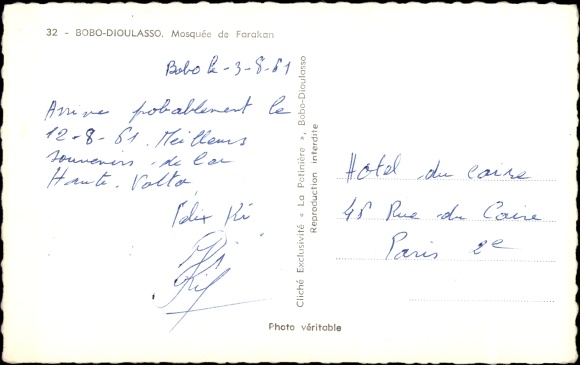 32 - BOBO-DIOULASSO. Mosquée de Farakan
Bobo le - 3-8-61
Arrive probablement le
12-8-61. Meilleurs
souvenirs de la
Haute-Volta
Felix Ki
Cliché Exclusivité « La Potinière », Bobo-Dioulasso
Reproduction interdite
Hotel du Caire
Rue du Caire
Paris 2e
Photo véritable